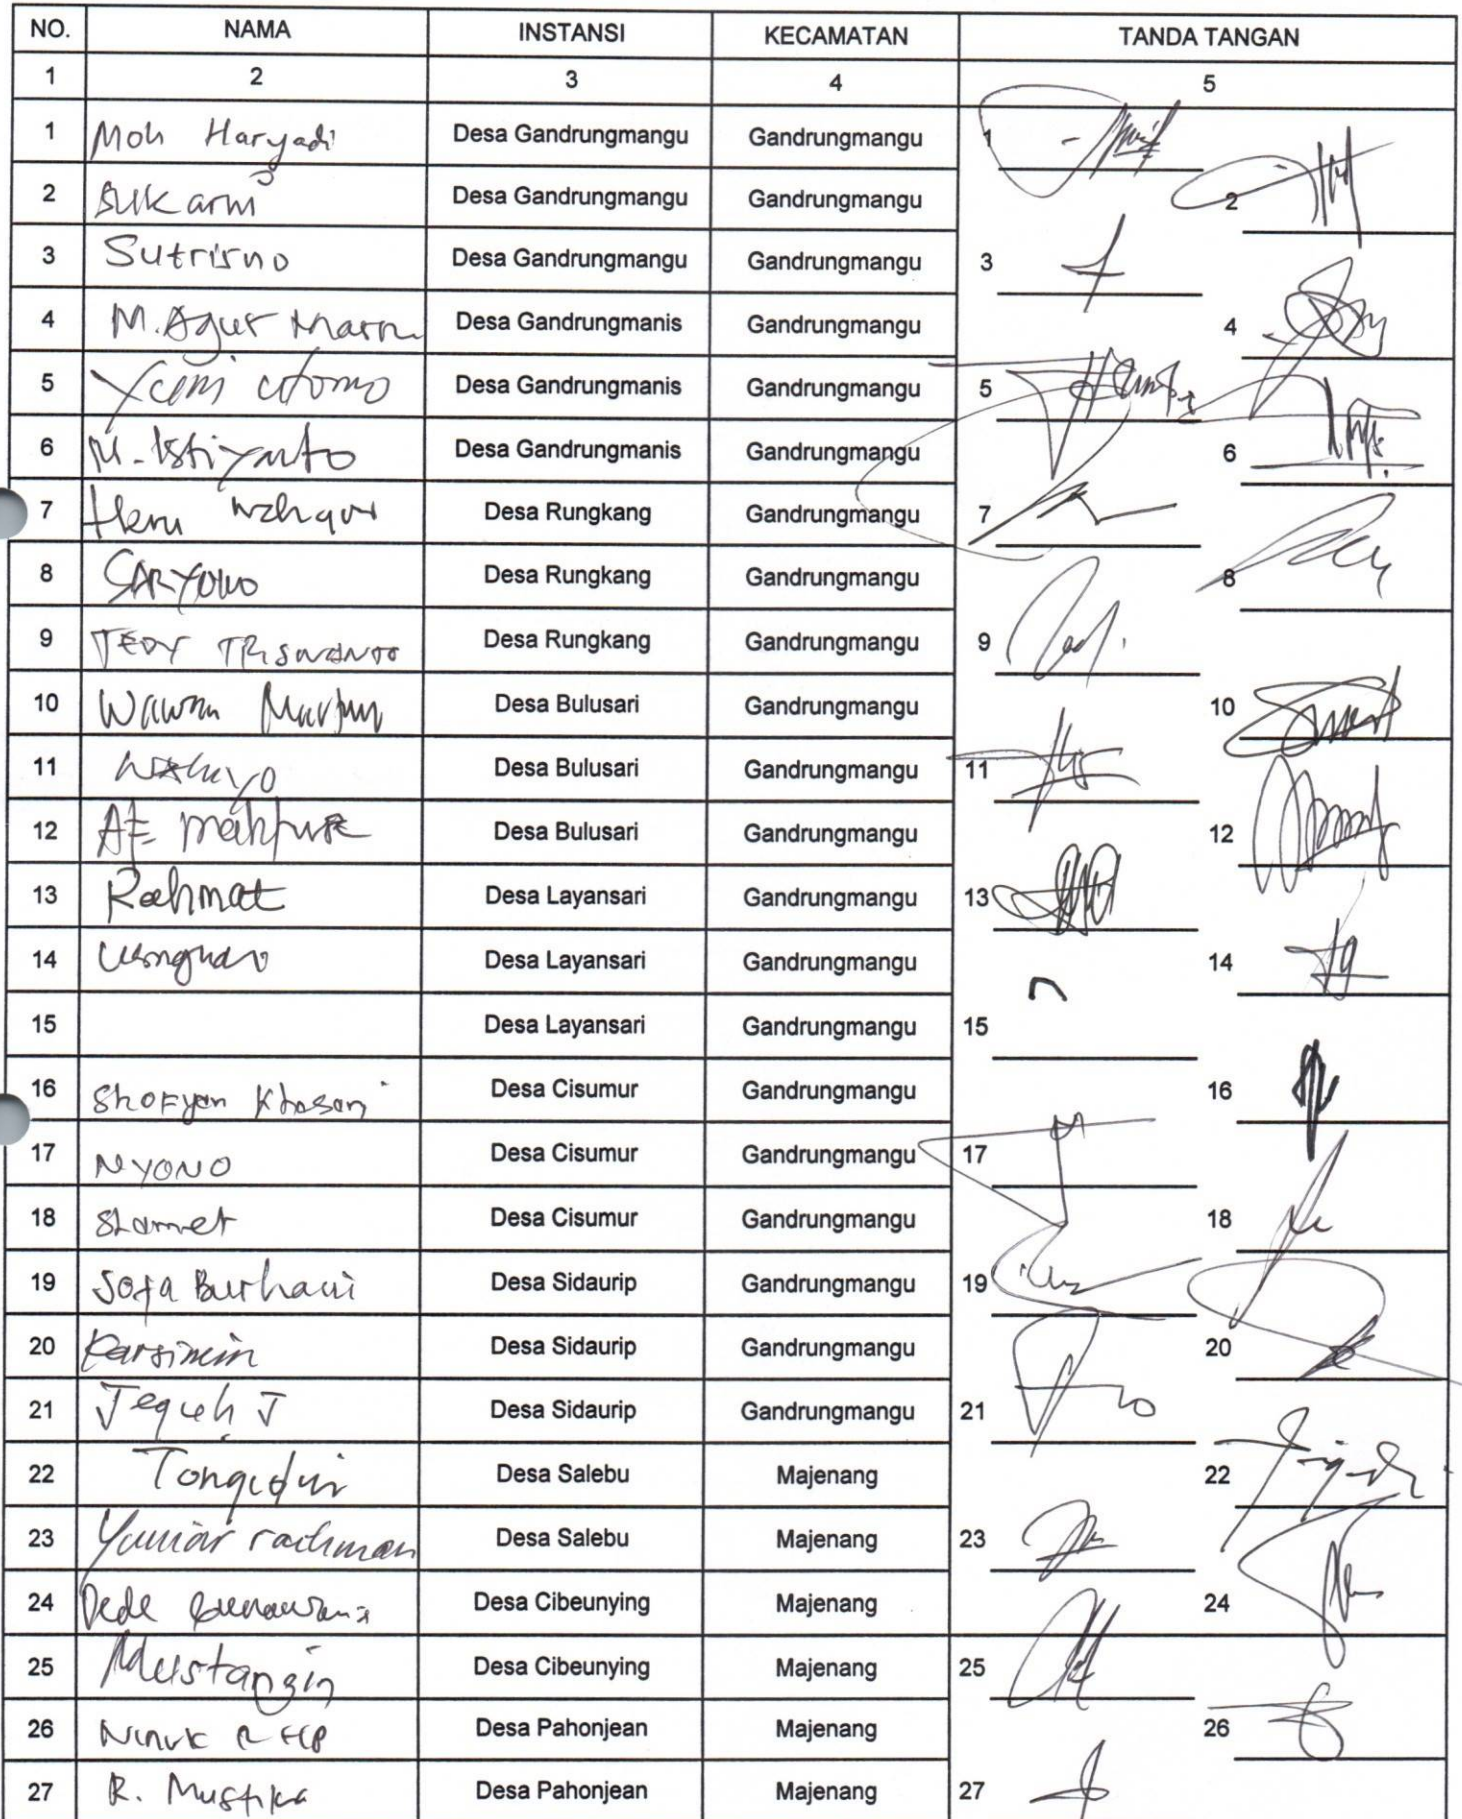 NO. NAMA INSTANSI KECAMATAN TANDA TANGAN
1 2 3 4 5
1 Moh Haryadi Desa Gandrungmangu Gandrungmangu 1
2 Sukarni Desa Gandrungmangu Gandrungmangu 2
3 Sutrisno Desa Gandrungmangu Gandrungmangu 3
4 M. Agus Desa Gandrungmanis Gandrungmangu 4
5 Utomo Desa Gandrungmanis Gandrungmangu 5
6 M. Istiyanto Desa Gandrungmanis Gandrungmangu 6
7 Heru Desa Rungkang Gandrungmangu 7
8 SARYONO Desa Rungkang Gandrungmangu 8
9 TEDY TRISWANTO Desa Rungkang Gandrungmangu 9
10 Wawan Desa Bulusari Gandrungmangu 10
11 Wahuyo Desa Bulusari Gandrungmangu 11
12 Desa Bulusari Gandrungmangu 12
13 Rahmat Desa Layansari Gandrungmangu 13
14 Desa Layansari Gandrungmangu 14
15 Desa Layansari Gandrungmangu 15
16 Shofyan Khasani Desa Cisumur Gandrungmangu 16
17 NYONO Desa Cisumur Gandrungmangu 17
18 Slamet Desa Cisumur Gandrungmangu 18
19 Sofa Burhani Desa Sidaurip Gandrungmangu 19
20 Karsimin Desa Sidaurip Gandrungmangu 20
21 Teguh J Desa Sidaurip Gandrungmangu 21
22 Desa Salebu Majenang 22
23 Yuniar rachman Desa Salebu Majenang 23
24 Dede Desa Cibeunying Majenang 24
25 Mustangin Desa Cibeunying Majenang 25
26 Desa Pahonjean Majenang 26
27 R. Mustika Desa Pahonjean Majenang 27